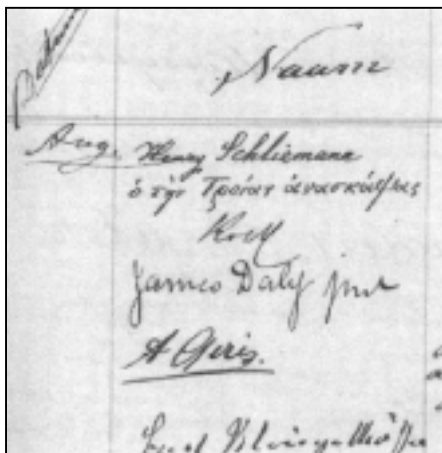 Datum
Naam
Aug. Henry Schliemann
ὁ τὴν Τροίαν ἀνασκάψας
James Daly jnr
A Geris.